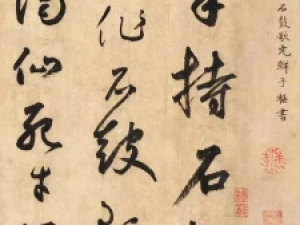 石鼓歌元鮮于樞書
手持石
作石鼓
謫仙死才